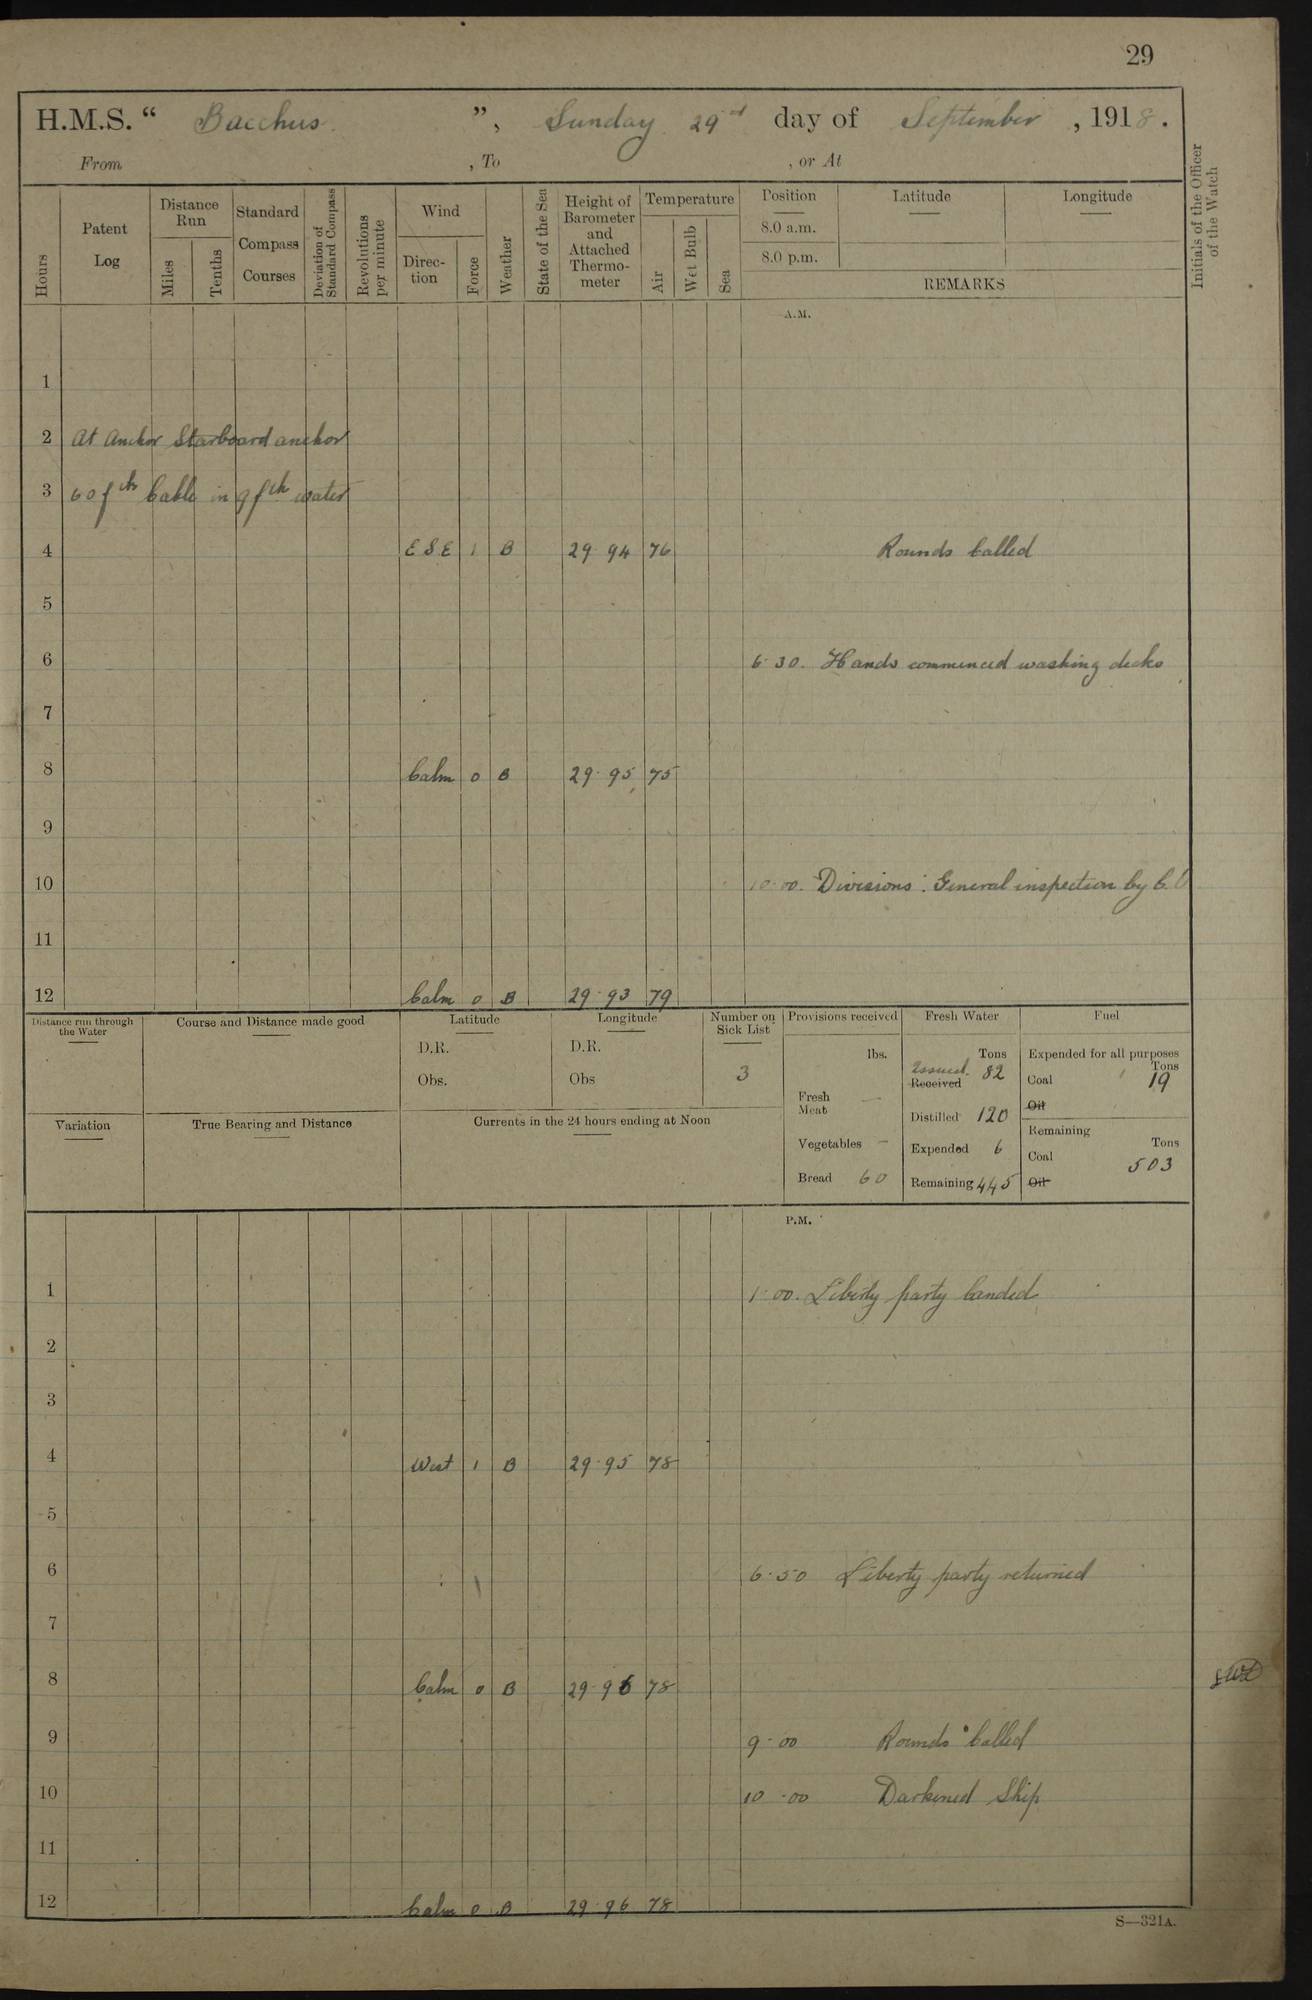 29
H.M.S. “ Bacchus ”, Sunday 29th day of September , 1918.
From , To , or At
Hours
Patent Log
Distance Run
Miles
Tenths
Standard Compass Courses
Deviation of Standard Compass
Revolutions per minute
Wind
Direc-tion
Force
Weather
State of the Sea
Height of Barometer and Attached Thermo-meter
Temperature
Air
Wet Bulb
Sea
Position Latitude Longitude
8.0 a.m.
8.0 p.m.
REMARKS
Initials of the Officer of the Watch
A.M.
1
2 At Anchor Starboard anchor
3 60 fth Cable in 9 fth water
4 ESE 1 B 29.94 76 Rounds Called
5
6 6.30. Hands commenced washing decks
7
8 Calm 0 B 29.95 75
9
10 10.00. Divisions. General inspection by C.O
11
12 Calm 0 B 29.93 79
Distance run through the Water
Course and Distance made good
Latitude
D.R.
Obs.
Longitude
D.R.
Obs
Number on Sick List
3
Provisions received
lbs.
Fresh Meat —
Vegetables —
Bread 60
Fresh Water
Tons
Issued 82
Received
Distilled 120
Expended 6
Remaining 445
Fuel
Expended for all purposes
Tons
Coal 19
Oil
Remaining
Tons
Coal 503
Oil
Variation
True Bearing and Distance
Currents in the 24 hours ending at Noon
P.M.
1 1.00. Liberty party landed
2
3
4 West 1 B 29.95 78
5
6 6.50 Liberty party returned
7
8 Calm 0 B 29.96 78
9 9.00 Rounds Called
10 10.00 Darkened Ship
11
12 Calm 0 B 29.96 78
S—321A.